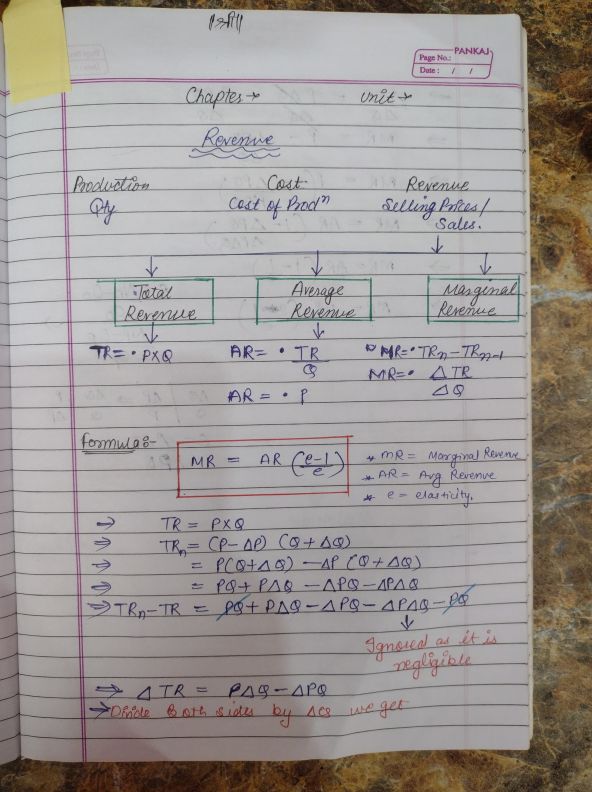 ||श्री||
PANKAJ
Page No.:
Date: / /
Chapter → Unit →
Revenue
Production Cost Revenue
Qty Cost of Prodⁿ Selling Prices/
Sales.
Total Average Marginal
Revenue Revenue Revenue
TR = • P×Q AR = • TR/Q MR = • TRn − TRn−1
MR = • ΔTR/ΔQ
AR = • P
Formula:-
MR = AR (e−1/e)
* MR = Marginal Revenue
* AR = Avg Revenue
* e = elasticity.
⇒ TR = P×Q
⇒ TRn = (P − ΔP) (Q + ΔQ)
⇒ = P(Q+ΔQ) − ΔP (Q + ΔQ)
⇒ = PQ + PΔQ − ΔPQ − ΔPΔQ
⇒ TRn − TR = PQ + PΔQ − ΔPQ − ΔPΔQ − PQ
Ignored as it is
negligible
⇒ ΔTR = PΔQ − ΔPQ
→ Divide Both sides by we get